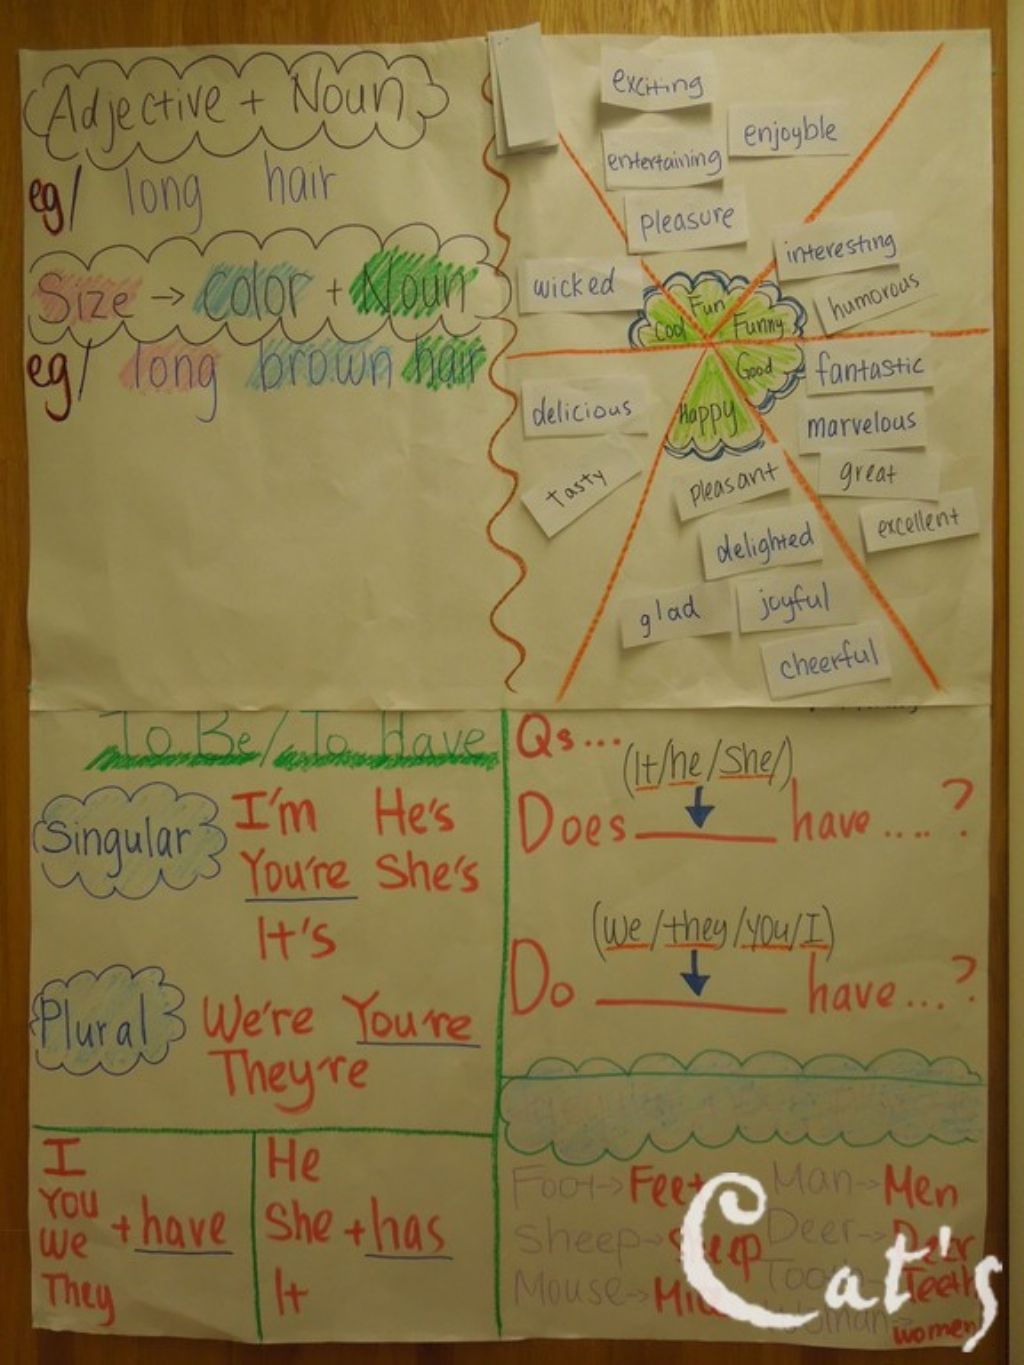 Adjective + Noun
eg/ long hair
Size → color + Noun
eg/ long brown hair
exciting
enjoyble
entertaining
pleasure
wicked
interesting
humorous
Fun
Cool
Funny
Good
Happy
fantastic
marvelous
great
excellent
delicious
tasty
pleasant
delighted
glad
joyful
cheerful
To Be/To Have
Singular
I'm He's
You're She's
It's
Plural
We're You're
They're
I
You
We
They
+ have
He
She
It
+ has
Qs...
(It/he/She/)
Does ______ have ....?
(We/they/you/I)
Do ______ have ...?
Foot→Feet
Man→Men
Sheep→Sheep
Deer→Deer
Mouse→
Tooth→Teeth
Woman→
women
Cat's